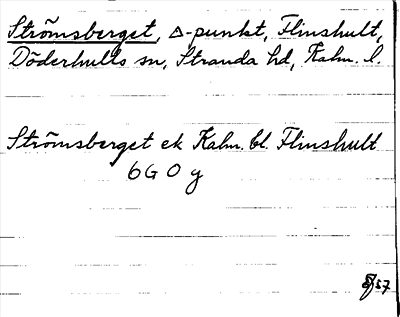 Strömsberget, △-punkt, Flinshult,
Döderhults sn, Stranda hd, Kalm. l.
Strömsberget ek Kalm. bl. Flinshult
6 G 0 y
57